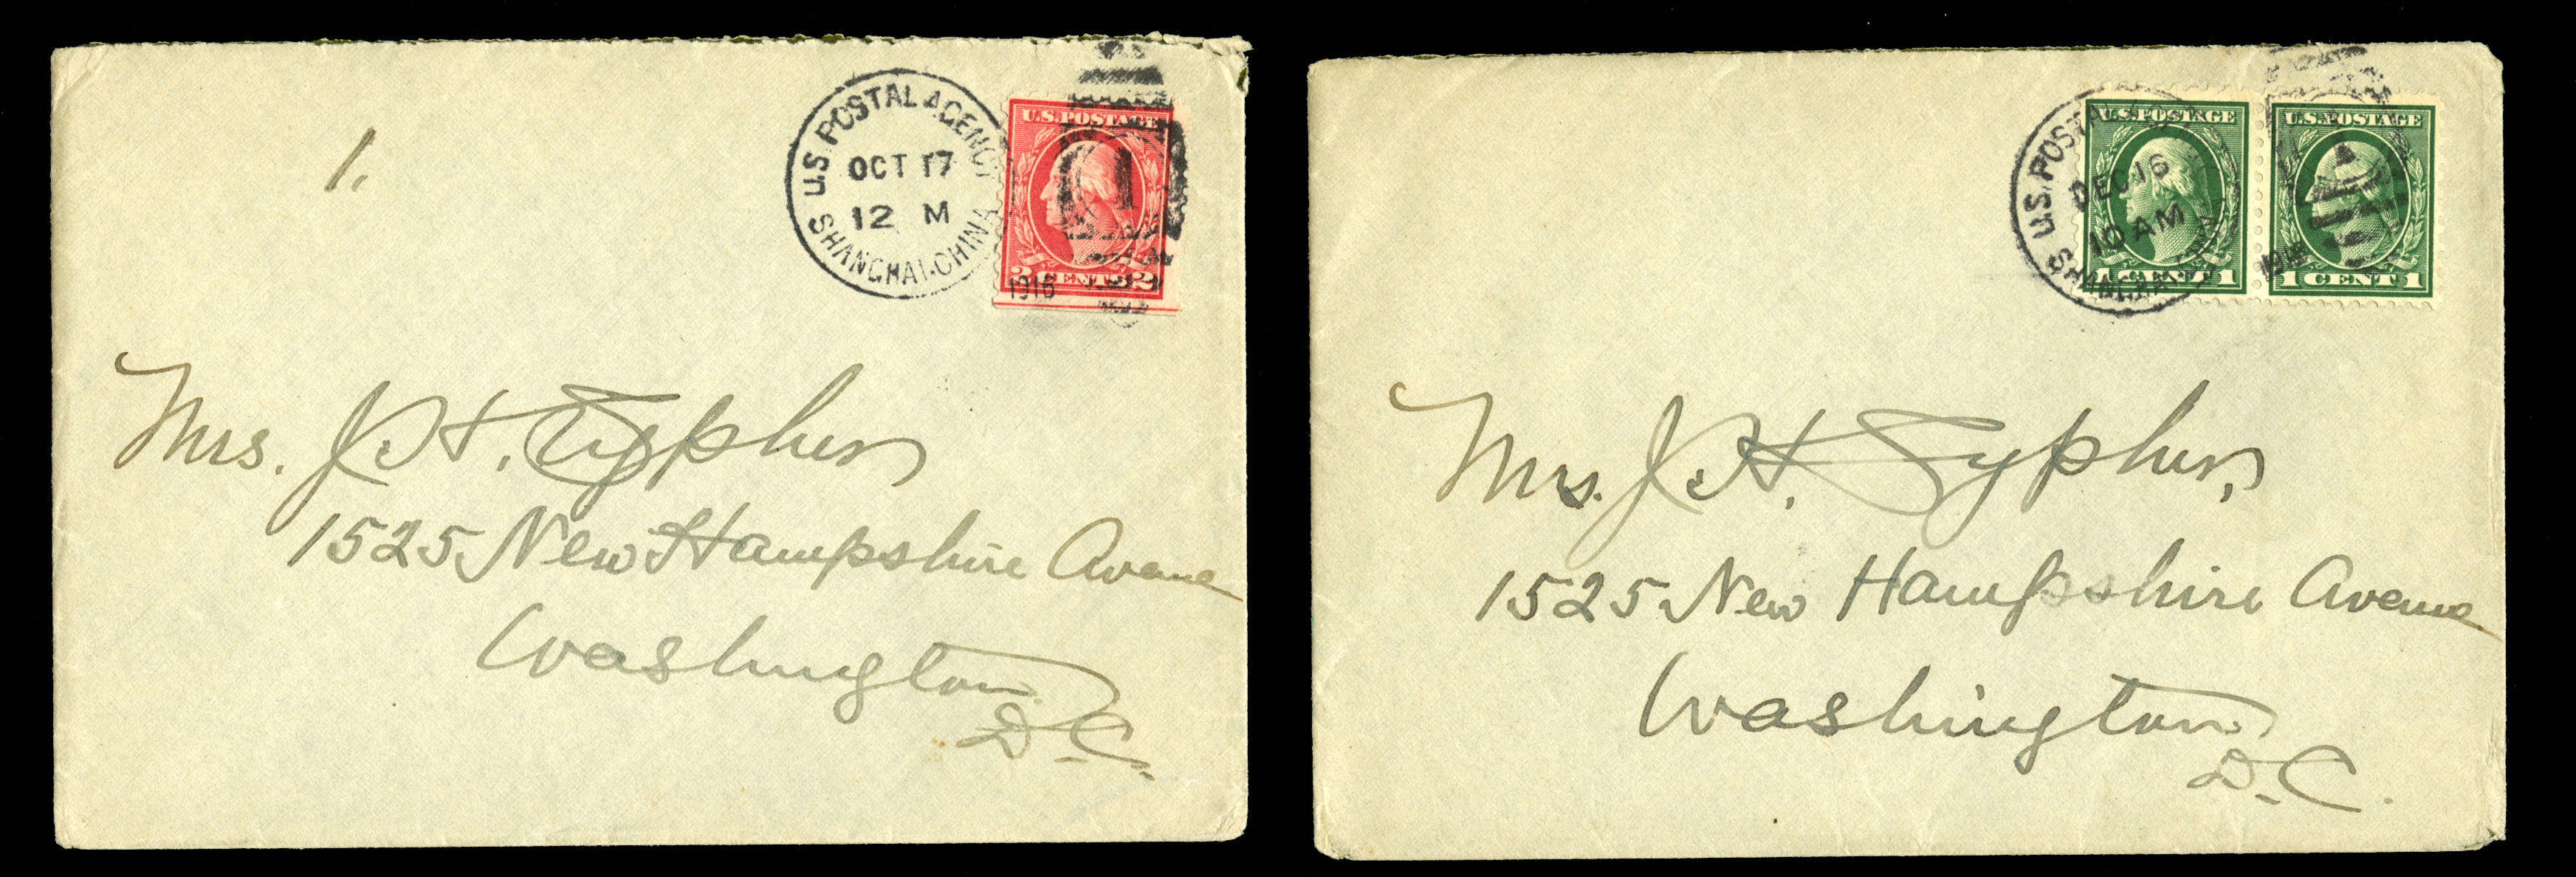 1.
U.S. POSTAL AGENCY
OCT 17
12 M
SHANGHAI-CHINA
1916
U.S. POSTAGE
2 CENTS 2
1
Mrs. J. H. Sypher
1525 New Hampshire Avenue
Washington
D.C.
U.S. POSTAL
DEC 16
10 AM
SHANGHAI
U.S. POSTAGE
1 CENT 1
U.S. POSTAGE
1 CENT 1
Mrs. J. H. Sypher,
1525 New Hampshire Avenue
Washington
D.C.